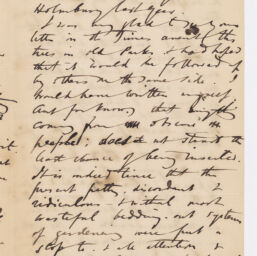 Holmbury last year.
I was very glad to see your
letter in the Times about the
trees in old Parks. I had hoped
that it would be followed up
by others on the same side. I
would have written myself
but for knowing that anything
coming from an obscure
people; does not stand the
least chance of being inserted.
It is indeed time that the
present petty, discordant &
ridiculous & withal most
wasteful bedding-out system
of gardening were put a
stop to. & the attention &